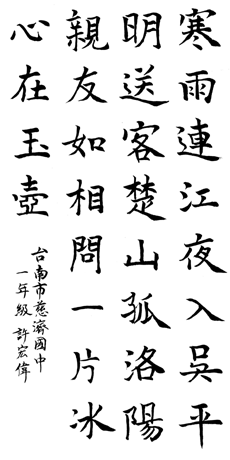 寒雨連江夜入吳平
明送客楚山孤洛陽
親友如相問一片冰
心在玉壺
台南市慈濟國中
一年級 許宏偉